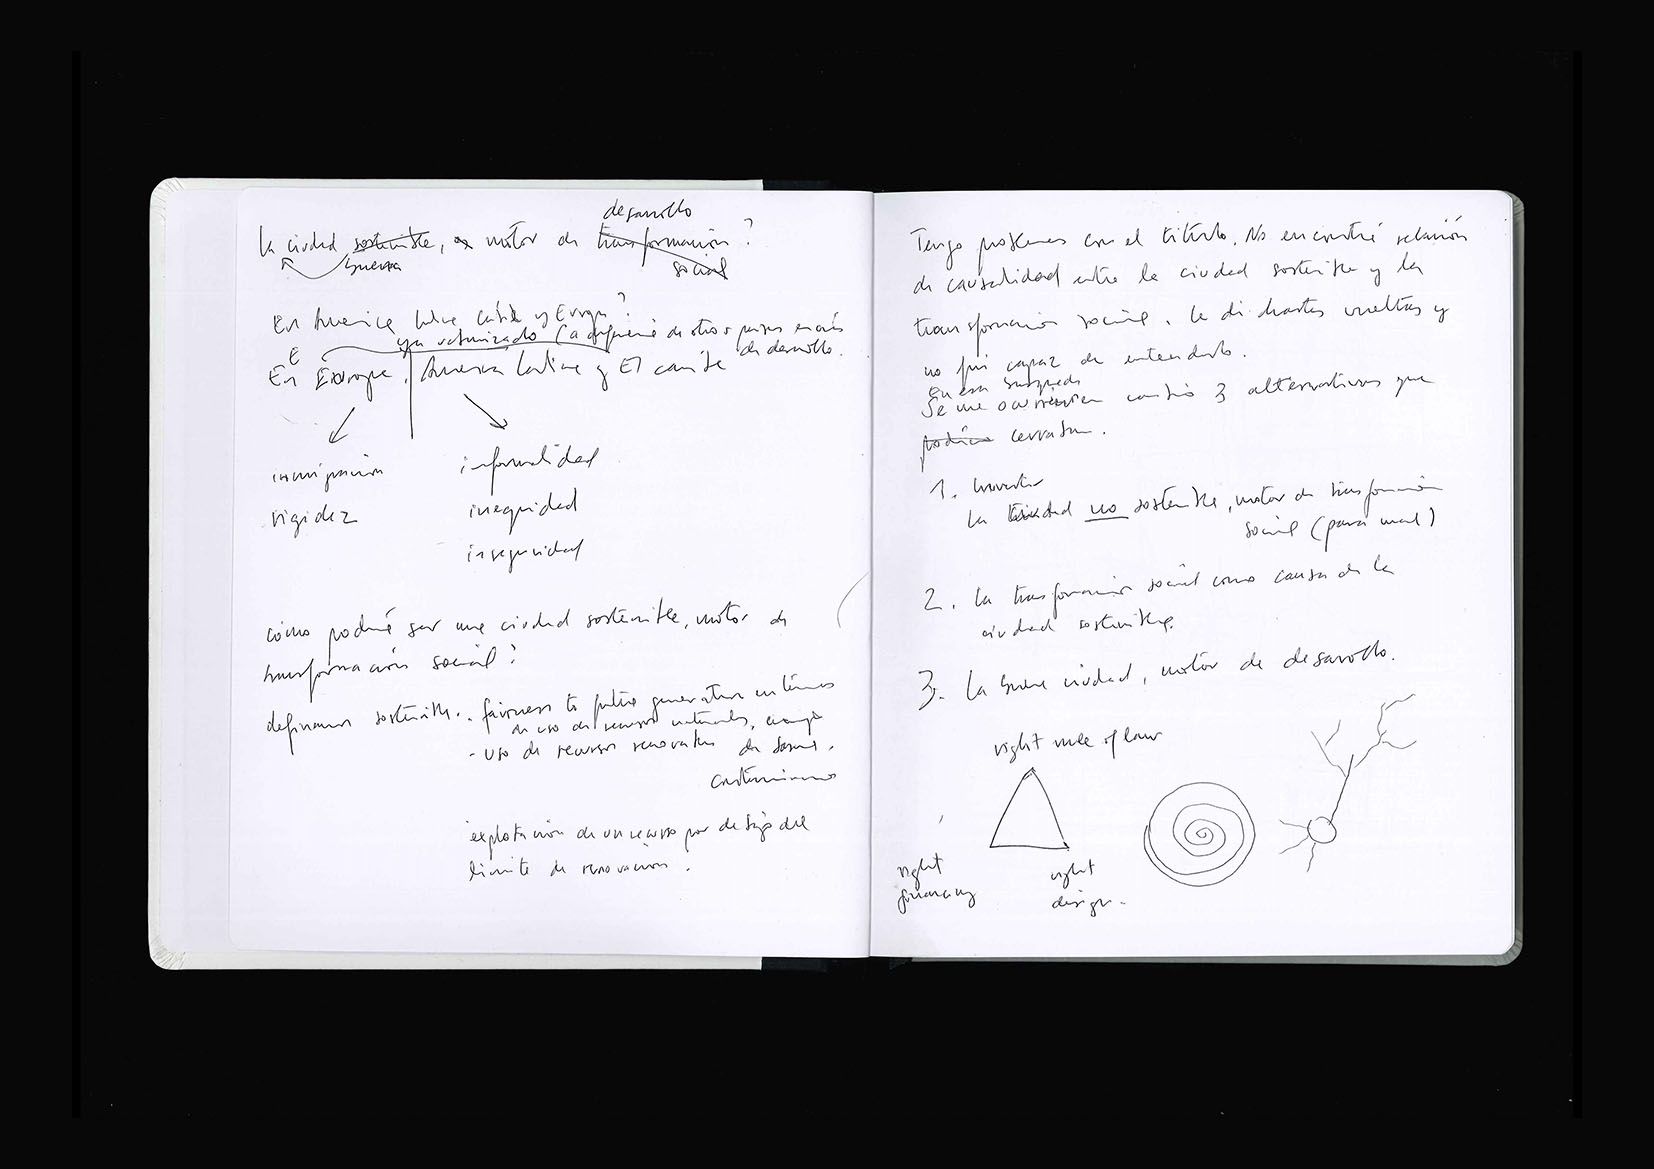 desarrollo
la ciudad sostenible, es motor de transformación ?
buena
social
En America latina Caribe y Europa ?
ya urbanizado (a diferencia de otros países en vías
de desarrollo.
En Europe, America latina y El caribe
inmigración
informalidad
rigidez
inequidad
inseguridad
cómo podría ser una ciudad sostenible, motor de
transformación social ?
definamos sostenible. - fairness to future generation en términos
de uso de recursos naturales, energía
- uso de recursos renovables de forma.
explotación de un recurso por debajo del
límite de renovación.
Tengo problemas con el título. No encontré relación
de causalidad entre la ciudad sostenible y la
transformación social. le di hartas vueltas y
no fui capaz de entenderlo.
en esa búsqueda
Se me ocurrieron cambio 3 alternativas que
podría cerrarlas.
1. Invertir
la ciudad no sostenible, motor de transformación
social (para mal)
2. la transformación social como causa de la
ciudad sostenible.
3. La buena ciudad, motor de desarrollo.
right rule of law
right
financing
right
design.